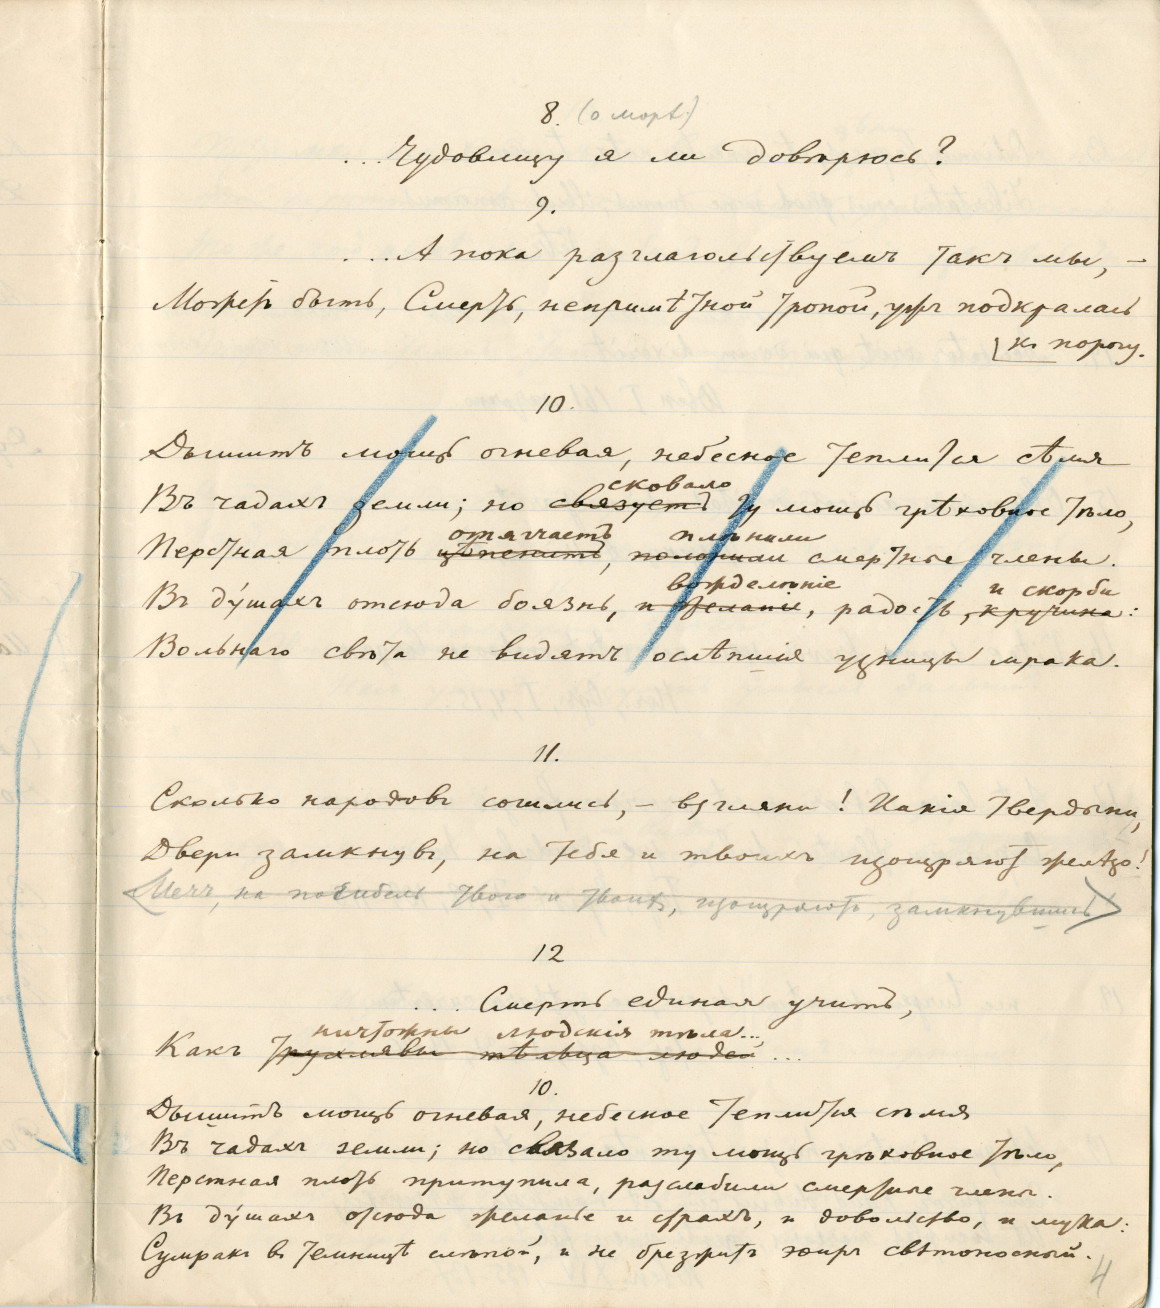 8. (о морѣ)
...Чудовищу я ли довѣрюсь?
9.
...А пока разглагольствуемъ такъ мы, –
Можетъ быть, Смерть, непримѣтной тропой, ужъ подкралась
къ порогу.
10.
Дышитъ мощь огневая, небесное теплится сѣмя
сковало
Въ чадахъ земли; но связуетъ ту мощь грѣховное тѣло,
отягчаетъ плѣнили
Перстная плоть цѣпенитъ, полонили смертные члены.
вожделѣніе и скорби
Въ ду́шахъ отсюда боязнь, и желаніе, радость, кручина:
Вольнаго свѣта не видятъ ослѣпшія узницы мрака.
11.
Сколько народовъ сошлись, – взгляни! Какія твердыни,
Двери замкнувъ, на тебя и твоихъ изощряютъ желѣзо!
Мечъ, на погибель твою и твоихъ, изощряютъ, замкнувшись
12
... Смерть единая учитъ,
ничтожны людскія тѣла...
Какъ трухлявы тѣльца людей ...
10.
Дышитъ мощь огневая, небесное теплится сѣмя
Въ чадахъ земли; но связало ту мощь грѣховное тѣло,
Перстная плоть притупила, разслабили смертные члены.
Въ ду́шахъ отсюда желанье и страхъ, и довольство, и мука:
Сумракъ въ темницѣ слѣпой, и не брезжитъ эѳиръ свѣтоносный.
4